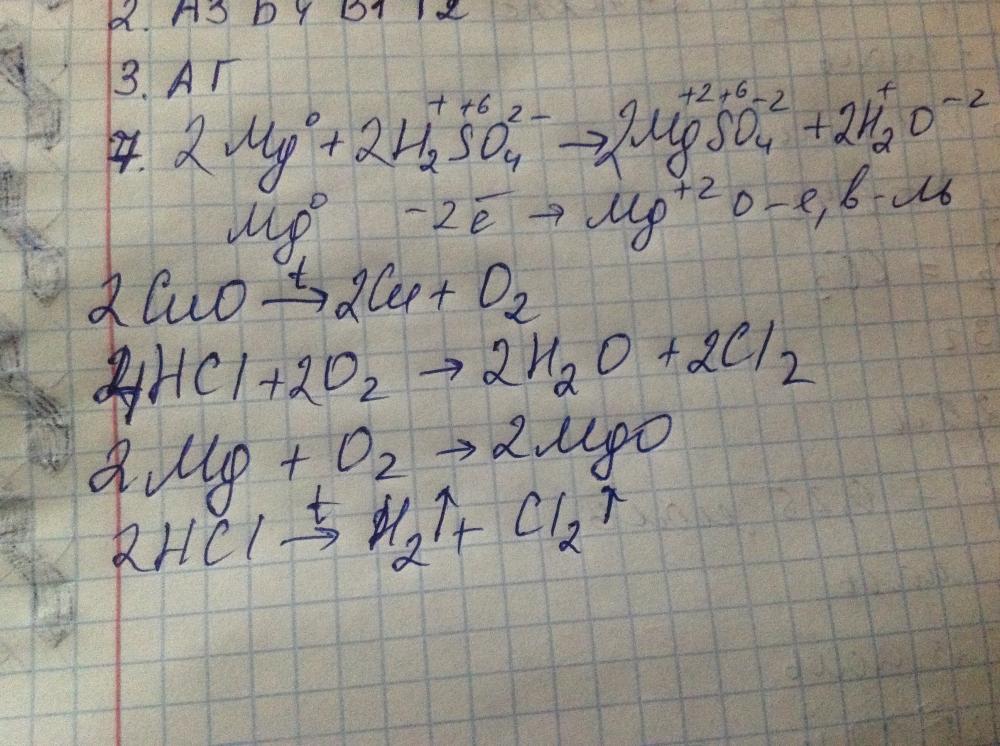 2. А3 Б4 В1 Г2
3. А Г
7. 2Mg⁰ + 2H₂⁺S⁺⁶O₄²⁻ → 2Mg⁺²S⁺⁶O₄⁻² + 2H₂⁺O⁻²
Mg⁰ -2ē → Mg⁺² о-е, в-ль
2CuO →t 2Cu + O₂
4HCl + 2O₂ → 2H₂O + 2Cl₂
2Mg + O₂ → 2MgO
2HCl →t H₂↑ + Cl₂↑